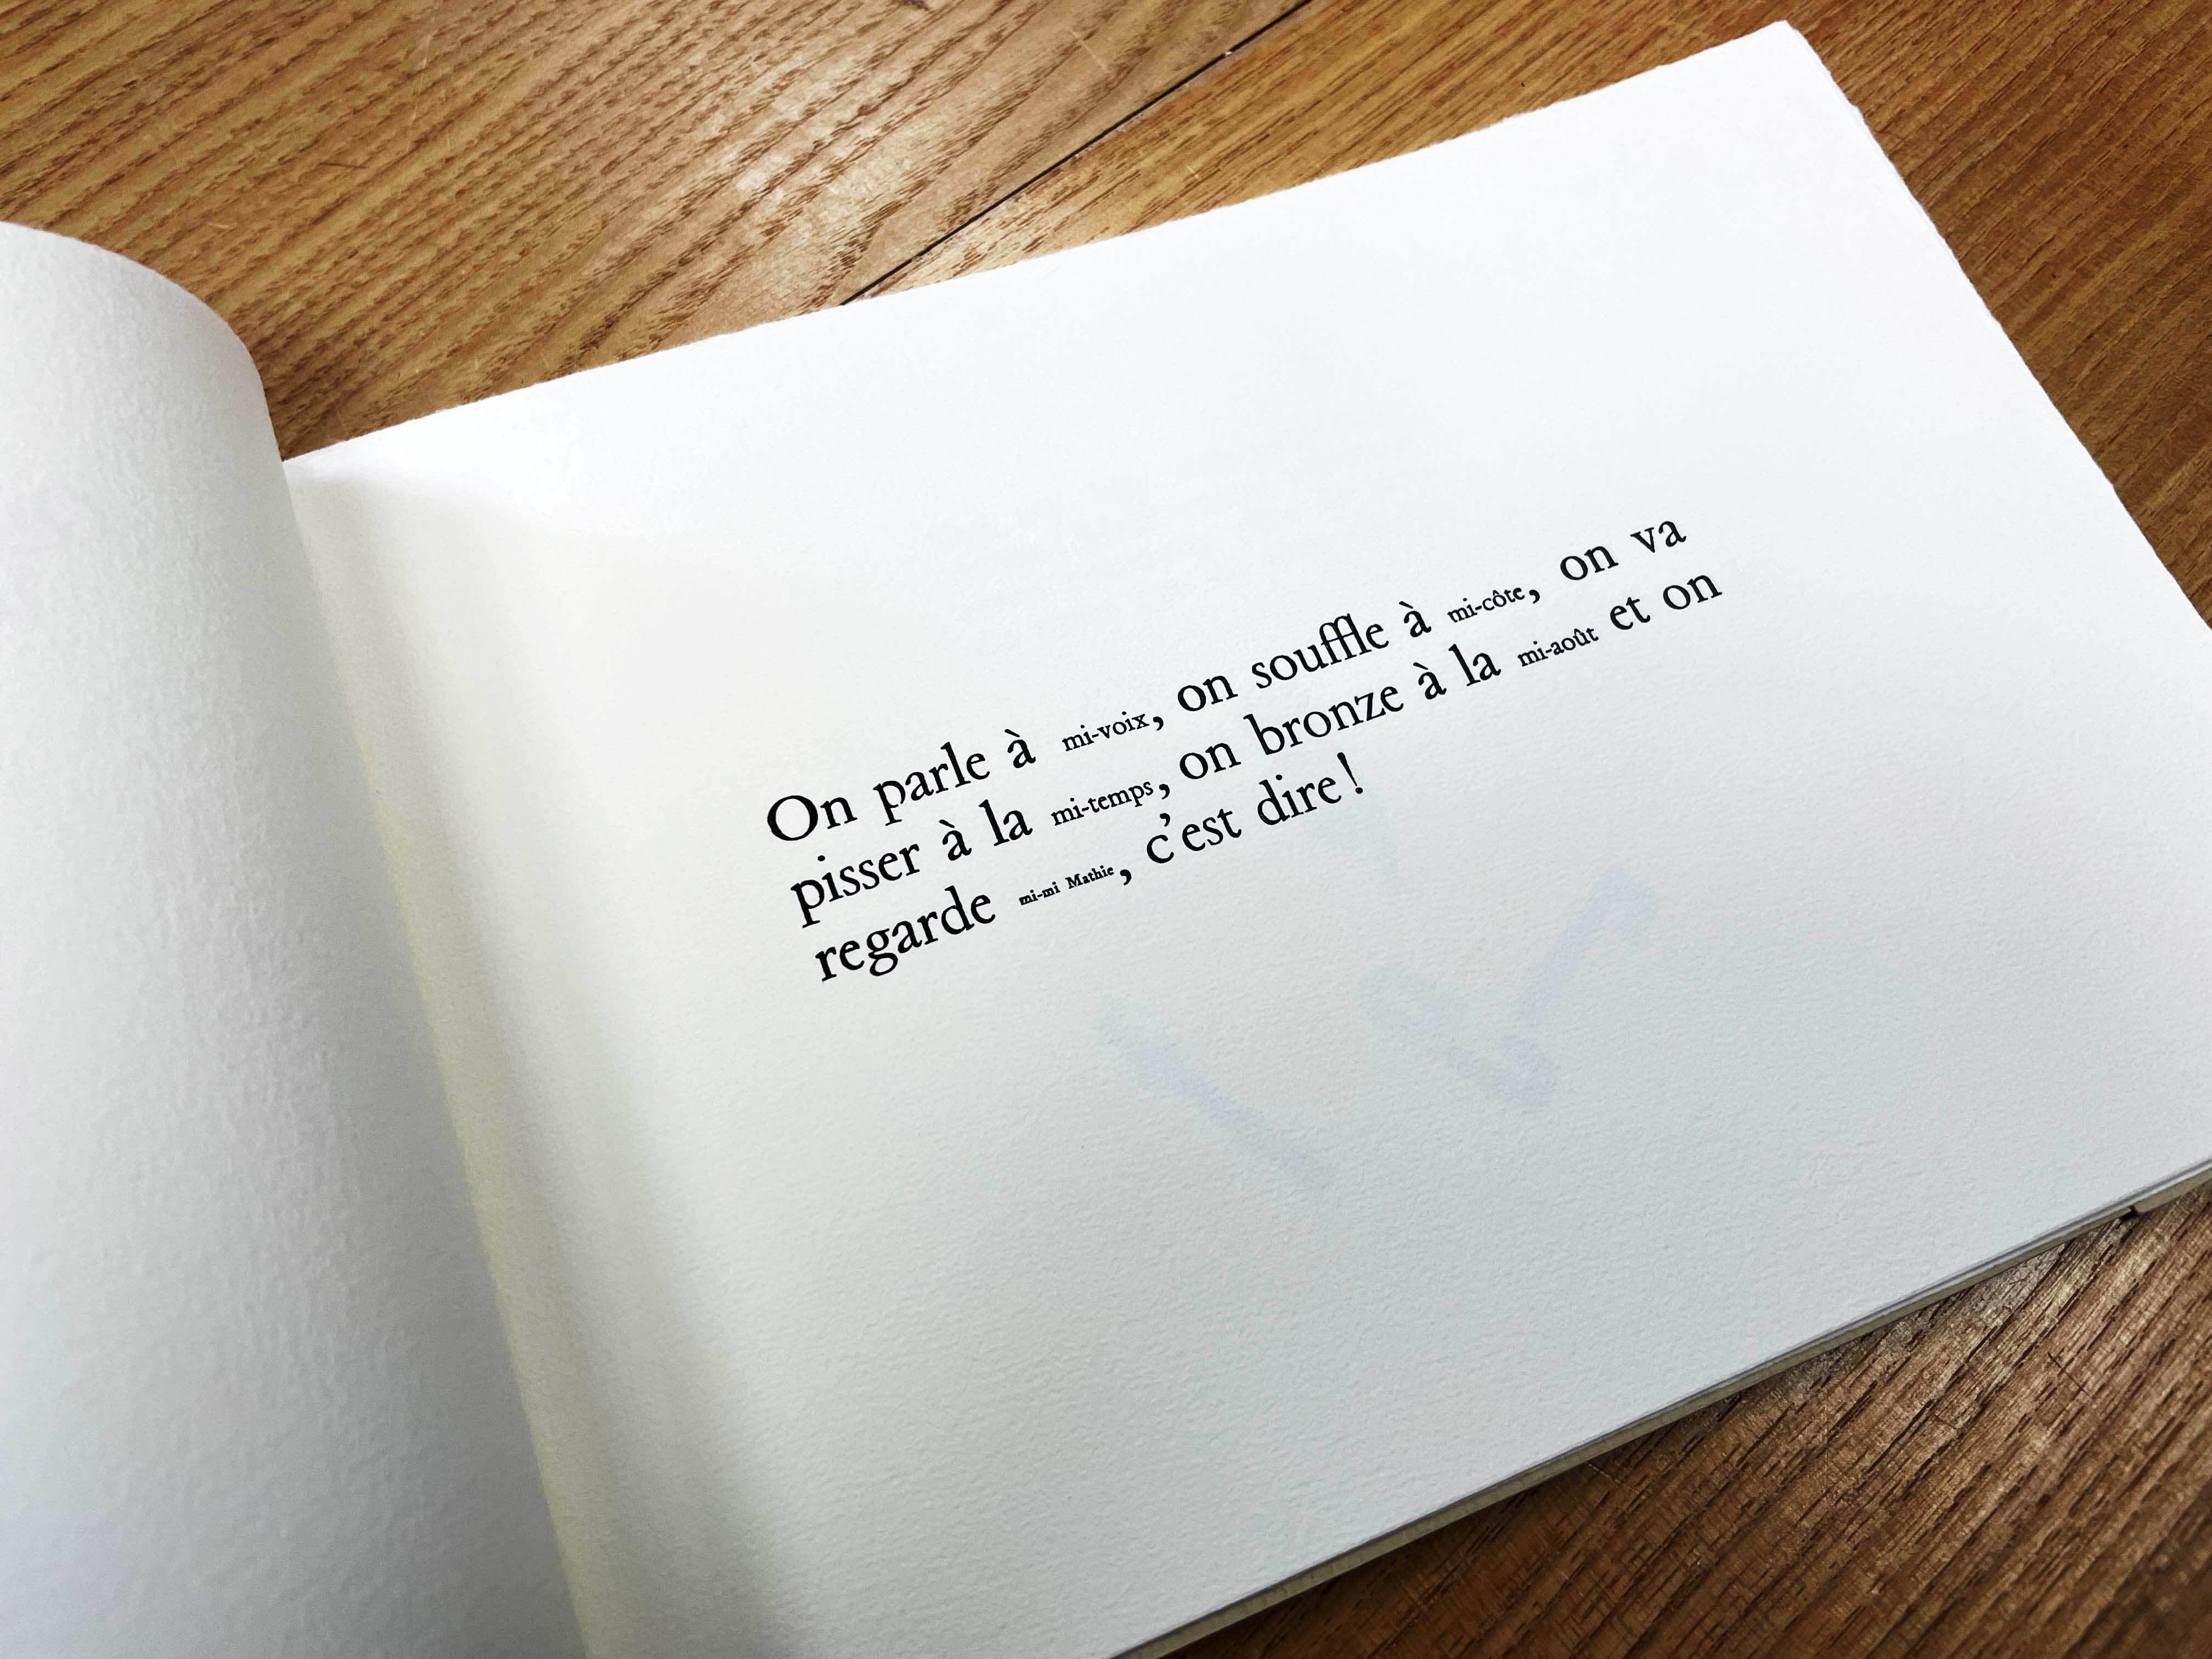 On parle à mi-voix, on souffle à mi-côte, on va
pisser à la mi-temps, on bronze à la mi-août et on
regarde mi-mi Mathie, c'est dire !